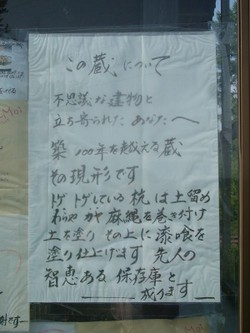 この蔵について
不思議な建物と
立ち寄られた あなたへ
築100年を越える蔵
その現形です
トゲトゲしている杭は土留め
わらや カヤ 麻縄を巻き付け
土を塗り その上に漆喰を
塗り仕上げます 先人の
智恵ある 保存庫と
成ります